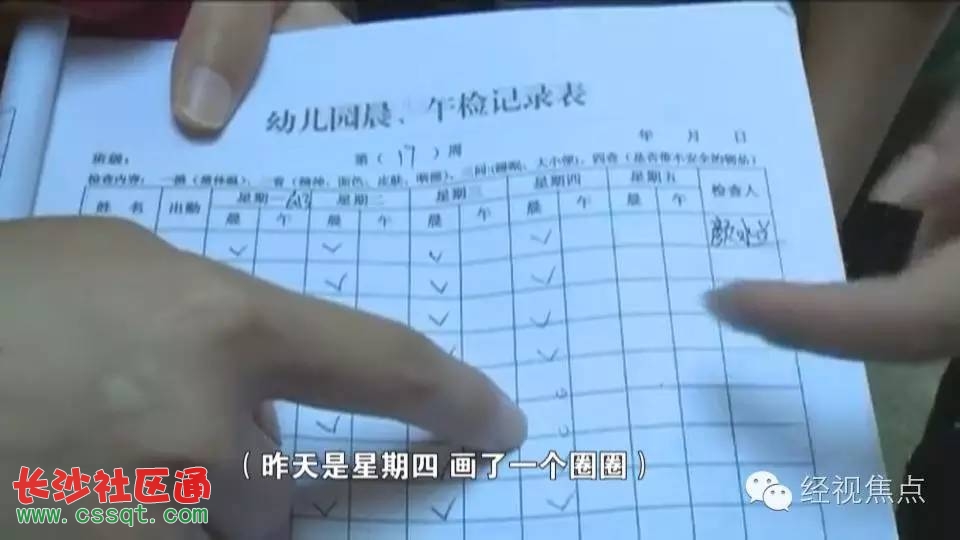 幼儿园晨、午检记录表
班级： 第（17）周 年 月 日
检查内容：一摸（摸体温）、二看（精神、面色、皮肤、咽喉）、三问（睡眠、大小便）、四查（是否带不安全的物品）
姓 名 出勤 星期一 星期二 星期三 星期四 星期五 检查人
晨 午 晨 午 晨 午 晨 午 晨 午
（昨天是星期四 画了一个圈圈）
长沙社区通
www.cssqt.com
经视焦点